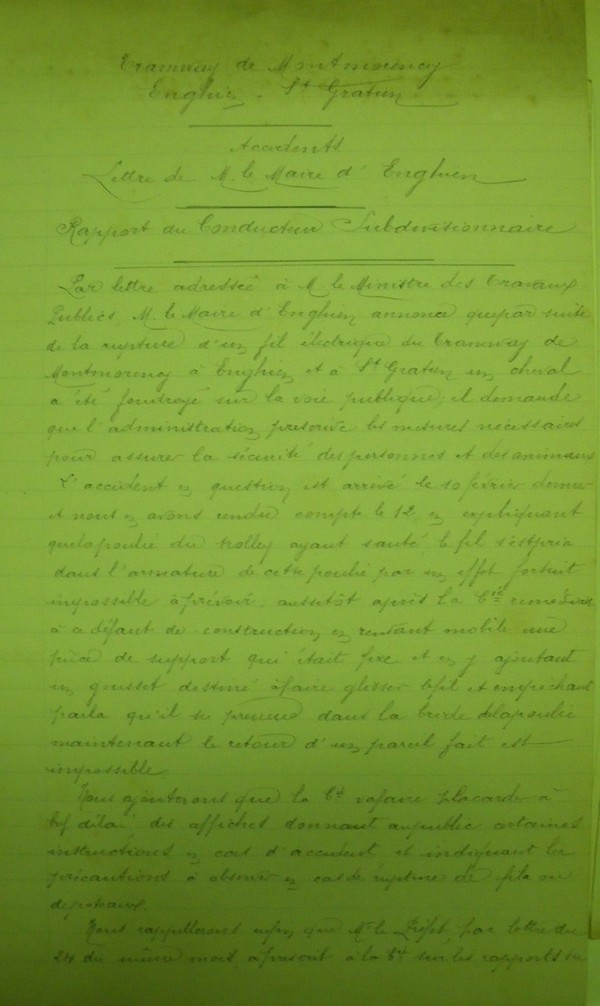 Tramway de Montmorency
Enghien - St Gratien
Accidents
Lettre de M. le Maire d'Enghien
Rapport du Conducteur Subdivisionnaire
Par lettre adressée à M le Ministre des Travaux
Publics, M. le Maire d'Enghien annonce que par suite
de la rupture d'un fil électrique du Tramway de
Montmorency à Enghien et à St Gratien un cheval
a été foudroyé sur la voie publique; il demande
que l'administration prescrive les mesures nécessaires
pour assurer la sécurité des personnes et des animaux
L'accident en question est arrivé le 10 février dernier
et nous en avons rendu compte le 12, en expliquant
que la poulie du trolley ayant sauté, le fil s'est pris
dans l'armature de cette poulie par un effet fortuit
impossible à prévoir. aussitôt après la Cie
à ce défaut de construction en rendant mobile une
pièce de support qui était fixe et en y ajoutant
un gousset destiné à faire glisser le fil et empêchant
par là qu'il se prenne dans la bride de la poulie
maintenant le retour d'un pareil fait est
impossible.
Nous ajouterons que la Cie va faire placarder à
bref délai des affiches donnant au public certaines
instructions en cas d'accident et indiquant les
précautions à observer en cas de rupture de fils ou
de poteaux.
Nous rappellerons enfin que Mr le Préfet, par lettre du
24 du même mois, a prescrit à la Cie sur les rapports